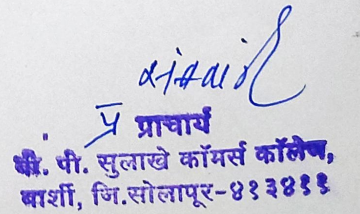 प्र प्राचार्य
बी. पी. सुलाखे कॉमर्स कॉलेज,
बार्शी, जि.सोलापूर-४१३४११